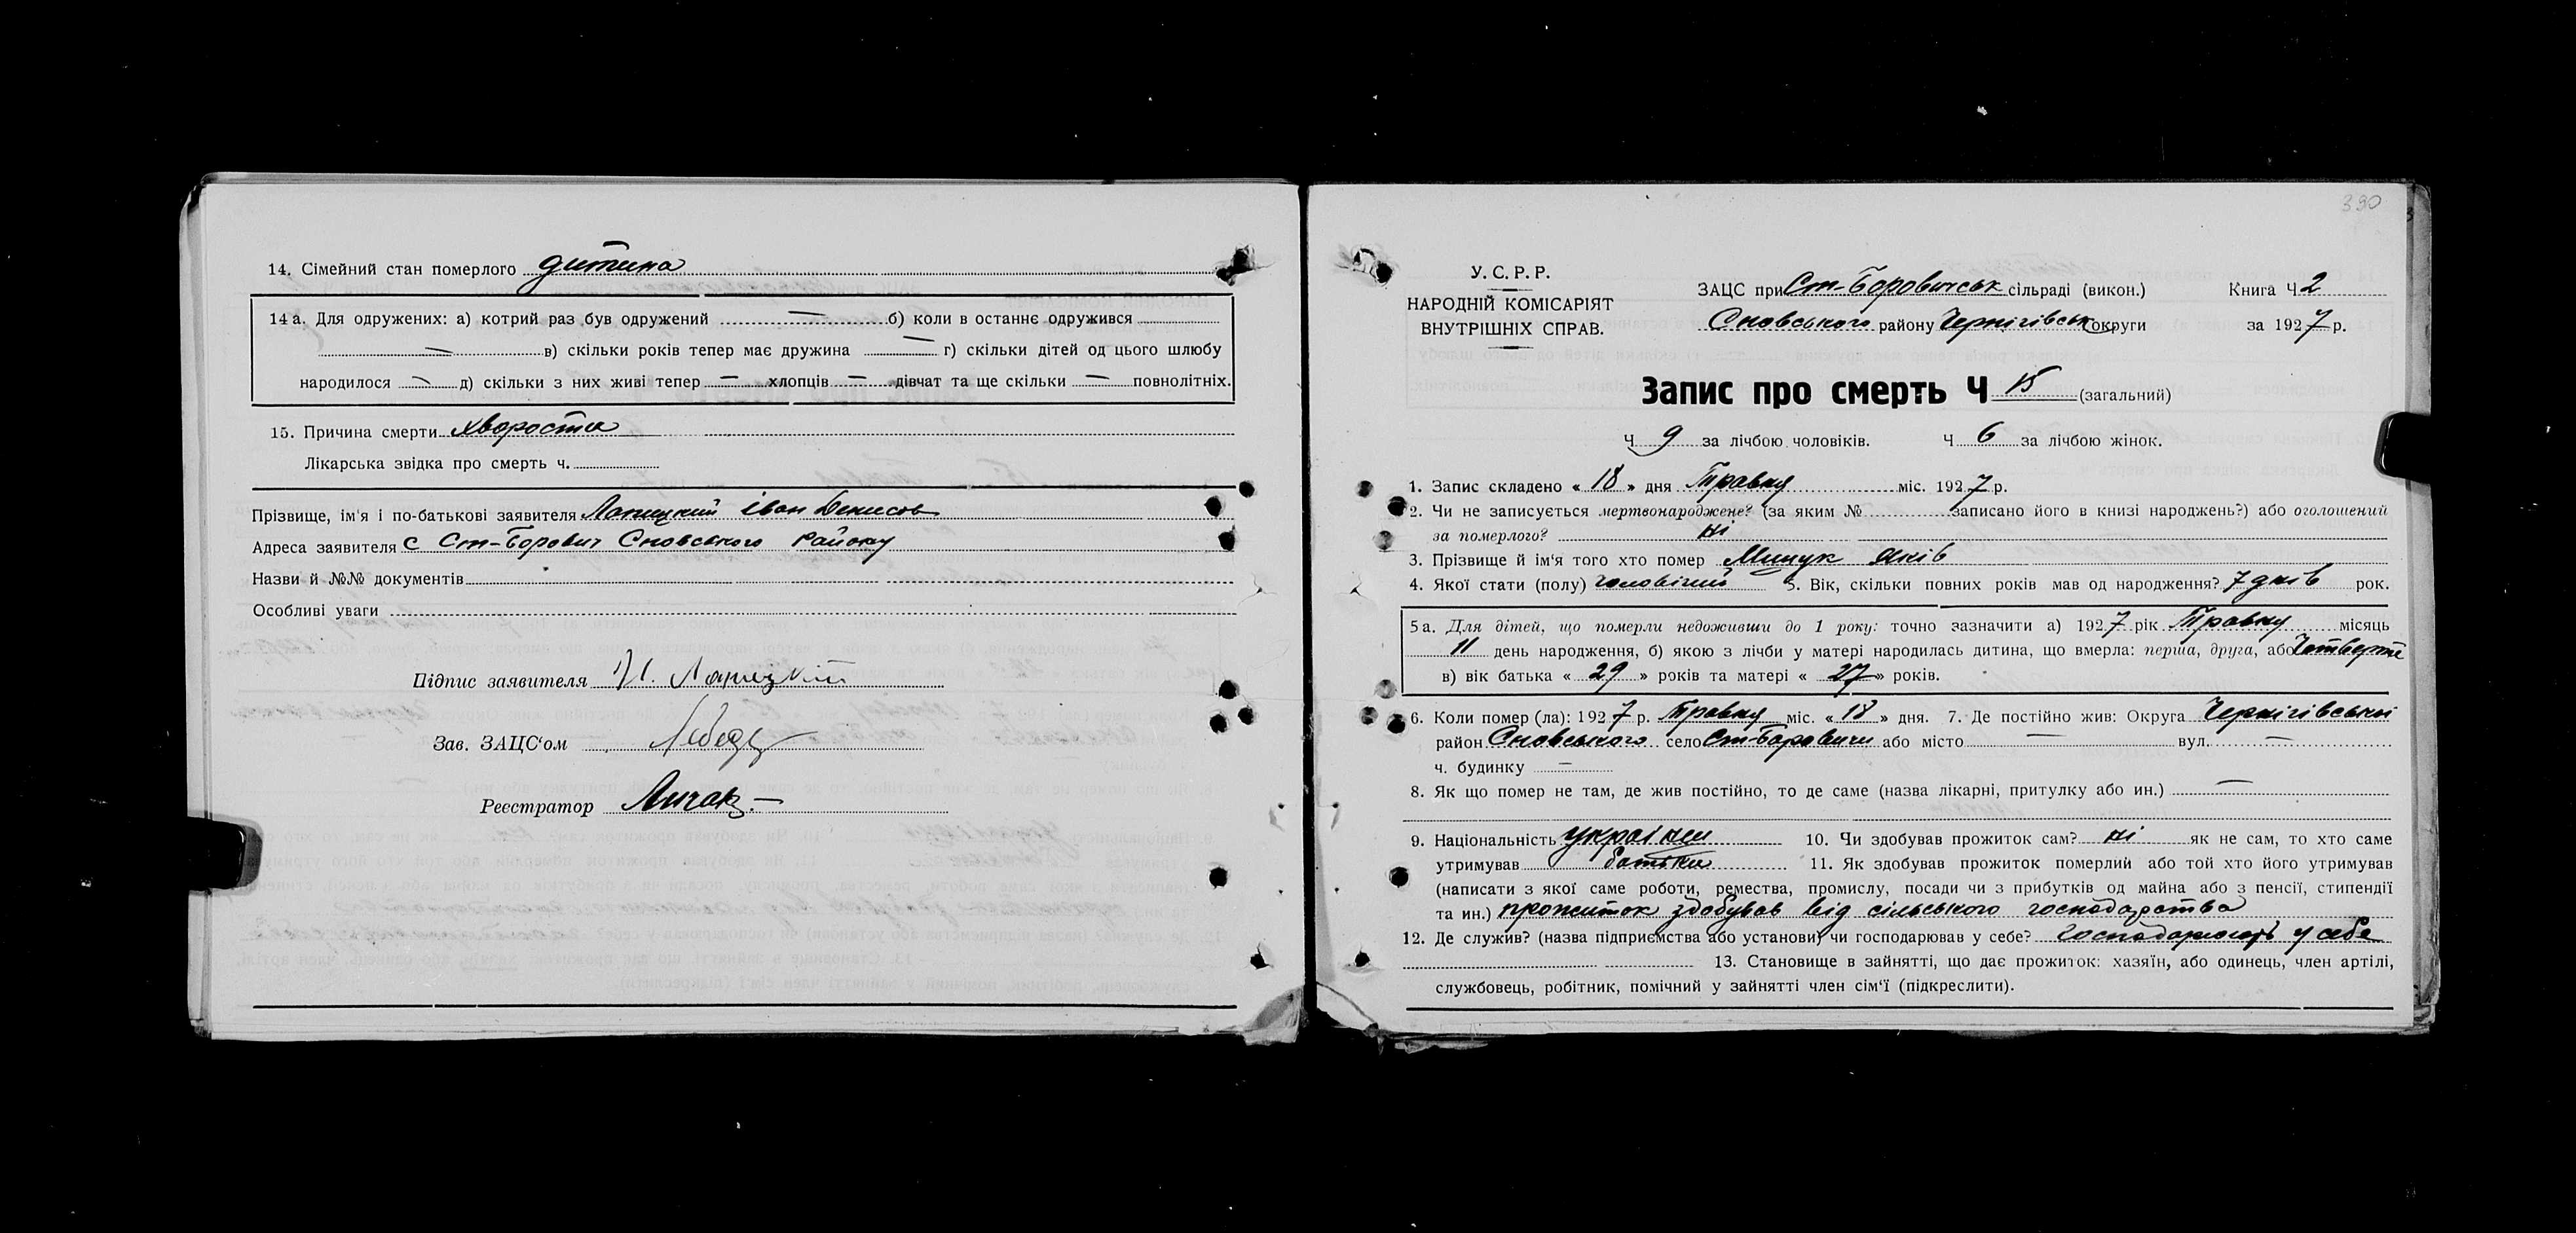 14. Сімейний стан померлого дитина
14 а. Для одружених: а) котрий раз був одружений — б) коли в останнє одружився
— в) скільки років тепер має дружина — г) скільки дітей од цього шлюбу
народилося — д) скільки з них живі тепер — хлопців — дівчат та ще скільки — повнолітніх.
15. Причина смерти хвороста
Лікарська звідка про смерть ч.
Прізвище, ім'я і по-батькові заявителя Лапицкий Іван Денисов
Адреса заявителя с Ст-Борович Сновського Району
Назви й №№ документів
Особливі уваги
Підпис заявителя И. Лапицкий
Зав. ЗАЦС'ом
Реєстратор
390
У. С. Р. Р.
НАРОДНІЙ КОМІСАРІЯТ
ВНУТРІШНІХ СПРАВ.
ЗАЦС при Ст-Боровичськ сільраді (викон.) Книга Ч 2
Сновського району Чернігівськ округи за 1927 р.
Запис про смерть Ч 15 (загальний)
Ч 9 за лічбою чоловіків. Ч 6 за лічбою жінок.
1. Запис складено « 18 » дня Травня міс. 1927 р.
2. Чи не записується мертвонароджене? (за яким № записано його в книзі народжень?) або оголошений
за померлого? ні
3. Прізвище й ім'я того хто помер Минук Яків
4. Якої стати (полу) чоловічий 5. Вік, скільки повних років мав од народження? 7 днів рок.
5 а. Для дітей, що померли недоживши до 1 року: точно зазначити а) 1927 рік Травню місяць
11 день народження, б) якою з лічби у матері народилась дитина, що вмерла: перша, друга, або Четверте
в) вік батька « 29 » років та матері « 27 » років.
6. Коли помер (ла): 1927 р. Травня міс. « 18 » дня. 7. Де постійно жив: Округа Чернігівської
район Сновського село Ст-Боровичи або місто — вул. —
ч. будинку —
8. Як що помер не там, де жив постійно, то де саме (назва лікарні, притулку або ин.) —
9. Національність 10. Чи здобував прожиток сам? ні як не сам, то хто саме
утримував батьки 11. Як здобував прожиток померлий або той хто його утримував
(написати з якої саме роботи, ремества, промислу, посади чи з прибутків од майна або з пенсії, стипендії
та ин.) прожиток здобував від сільського господарства
12. Де служив? (назва підприємства або установи) чи господарював у себе? господарюють у себе
13. Становище в зайнятті, що дає прожиток: хазяїн, або одинець, член артілі,
службовець, робітник, помічний у зайнятті член сім'ї (підкреслити).